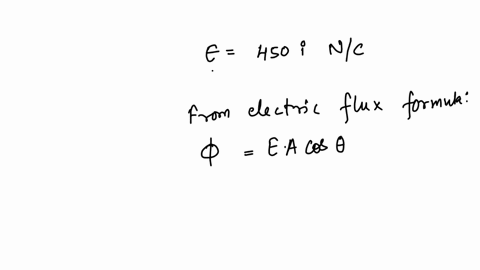 E = 450 i N/C
From electric flux formula:
ϕ = E.A cos θ